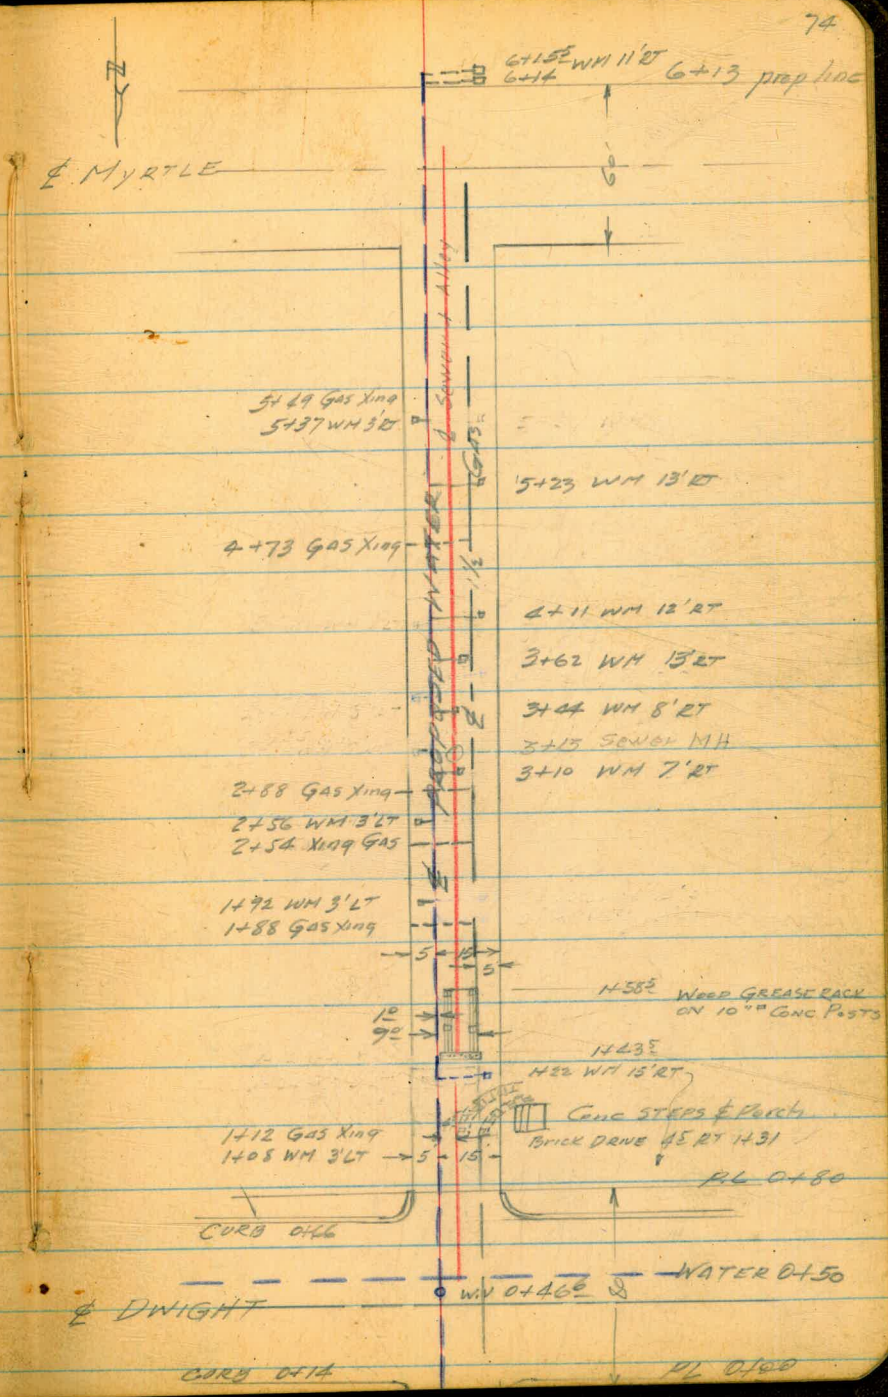 74
N
6+15⁵ WM 11' RT
6+14
6+13 prop line
60'
℄ MYRTLE
Sewer
Alley
5+49 Gas Xing
5+37 WM 3' RT
GAS
5+23 WM 13' RT
4+73 GAS Xing
1½
WATER MAIN
4+11 WM 12' RT
3+62 WM 13' RT
3+44 WM 8' RT
3+13 Sewer MH
3+10 WM 7' RT
2+88 Gas Xing
2+56 WM 3' LT
2+54 Xing Gas
1+92 WM 3' LT
1+88 Gas Xing
5 15
5
1+58⁵ WOOD GREASE RACK
ON 10"□ CONC. POSTS
1⁰
9⁰
1+43⁵
1+22 WM 15' RT
Conc STEPS & Porch
BRICK DRIVE RT 1+31
1+12 Gas Xing
1+08 WM 3' LT
5 15
P.L 0+80
CURB 0+66
WATER 0+50
W.V 0+46⁶
80
℄ DWIGHT
CURB 0+14
PL 0+00